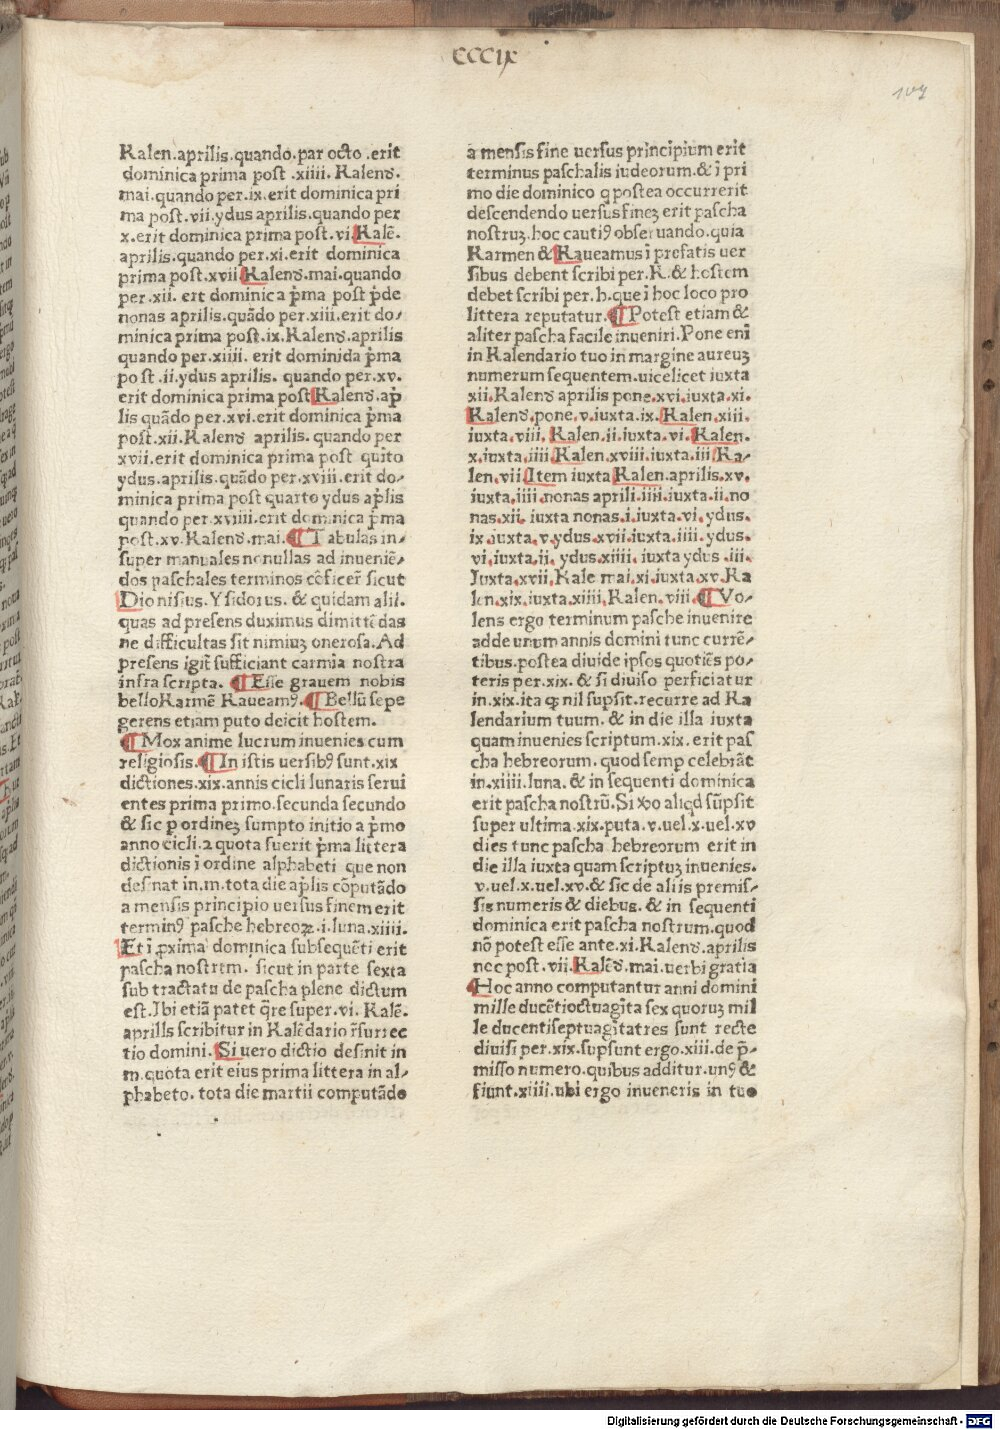 CCCIX
107
Kalen.aprilis.quando.par octo.erit
dominica prima post .xiiii. Kalend̄.
mai.quando per.ix.erit dominica pri
ma post.vii.ydus aprilis.quando per
x.erit dominica prima post.vi.Kalē.
aprilis.quando per.xi.erit dominica
prima post.xvii.Kalend̄.mai.quando
per.xii. ert dominica p̄ma post p̄de
nonas aprilis.quādo per.xiii.erit do⸗
minica prima post.ix.Kalend̄.aprilis
quando per.xiiii. erit dominida p̄ma
post.ii.ydus aprilis. quando per.xv.
erit dominica prima post Kalend̄.ap̄
lis quādo per.xvi.erit dominica p̄ma
post.xii.Kalend̄ aprilis. quando per
xvii.erit dominica prima post quīto
ydus.aprilis.quādo per.xviii.erit do⸗
minica prima post quarto ydus ap̄lis
quando per.xviiii.erit dominica p̄ma
post.xv.Kalend̄.mai.¶Tabulas in⸗
super manuales nonullas ad inueniē⸗
dos paschales terminos cōficer̄ sicut
Dionisius.Ysidorus.& quidam alii.
quas ad presens duximus dimittēdas
ne difficultas sit nimiuʒ onerosa.Ad
presens igiť sufficiant carmīa nostra
infra scripta. ¶Esse grauem nobis
bello Karmē Kaueamꝰ.¶Bellū sepe
gerens etiam puto deicit hostem.
¶Mox anime lucrum inuenies cum
religiosis.¶In istis uersibꝰ sunt.xix
dictiones.xix.annis cicli lunaris serui
entes prima primo.secunda secundo
& sic ꝑ ordineʒ sumpto initio a p̄mo
anno cicli.⁊ quota fuerit p̄ma littera
dictionis ī ordine alphabeti que non
desinat in.m.tota die ap̄lis cōputādo
a mensis principio uersus finem erit
terminꝰ pasche hebreoꝝ.i.luna.xiiii.
Et ī ꝓxima dominica subsequēti erit
pascha nostrem. sicut in parte sexta
sub tractatu de pascha plene dictum
est.Ibi etiā patet q̄re super.vi. Kalē.
aprilis scribitur in Kalēdario r̄surrec
tio domini.Si uero dictio desinit in
m.quota erit eius prima littera in al⸗
phabeto.tota die martii computādo
a mensis fine uersus principium erit
terminus paschalis iudeorum.& ī pri
mo die dominico q postea occurrerit
descendendo uersus fineʒ erit pascha
nostruʒ.hoc cautiꝰ obseruando.quia
Karmen & Kaueamus ī prefatis uer
sibus debent scribi per.K.& hostem
debet scribi per.h.que ī hoc loco pro
littera reputatur.¶Potest etiam &
aliter pascha facile inueniri.Pone enī
in Kalendario tuo in margine aureuʒ
numerum sequentem.uicelicet iuxta
xii.Kalend̄ aprilis pone.xvi.iuxta.xi.
Kalend̄.pone.v.iuxta.ix.Kalen.xiii.
iuxta.viii.Kalen.ii.iuxta.vi.Kalen.
x.iuxta.iiii.Kalen.xviii.iuxta.iii.Ka⸗
len.vii.Item iuxta Kalen.aprilis.xv.
iuxta.iiii.nonas aprili.iiii.iuxta.ii.no
nas.xii. iuxta nonas.i.iuxta.vi.ydus.
ix.iuxta.v.ydus.xvii.iuxta.iiii.ydus.
vi.iuxta.ii.ydus.xiiii. iuxta ydus .iii.
Iuxta.xvii.Kale mai.xi.iuxta.xv.Ka
len.xix.iuxta.xiiii.Kalen.viii.¶Vo⸗
lens ergo terminum pasche inuenire
adde unum annis domini tunc currē⸗
tibus.postea diuide ipsos quotiēs po⸗
teris per.xix.& si diuiso perficiatur
in.xix.ita qꝫ nil supsit.recurre ad Ka
lendarium tuum.& in die illa iuxta
quam inuenies scriptum.xix.erit pas
cha hebreorum.quod semp celebrāt
in.xiiii.luna.& in sequenti dominica
erit pascha nostrū.Si ꝟo aliqd sūpsit
super ultima.xix.puta.v.uel.x.uel.xv
dies tunc pascha hebreorum erit in
die illa iuxta quam scriptuʒ inuenies.
v.uel.x.uel.xv.& sic de aliis premis⸗
sis numeris & diebus.& in sequenti
dominica erit pascha nostrum.quod
nō potest esse ante.xi.Kalend̄.aprilis
nec post.vii.Kalēd̄.mai.uerbi gratia
Hoc anno computantur anni domini
mille ducētioctuagīta sex quoruʒ mil
le ducentiseptuagītatres sunt recte
diuisi per.xix.supsunt ergo.xiii.de p̄⸗
misso numero.quibus additur.unꝰ &
fiunt.xiiii.ubi ergo inueneris in tuo
Digitalisierung gefördert durch die Deutsche Forschungsgemeinschaft - DFG